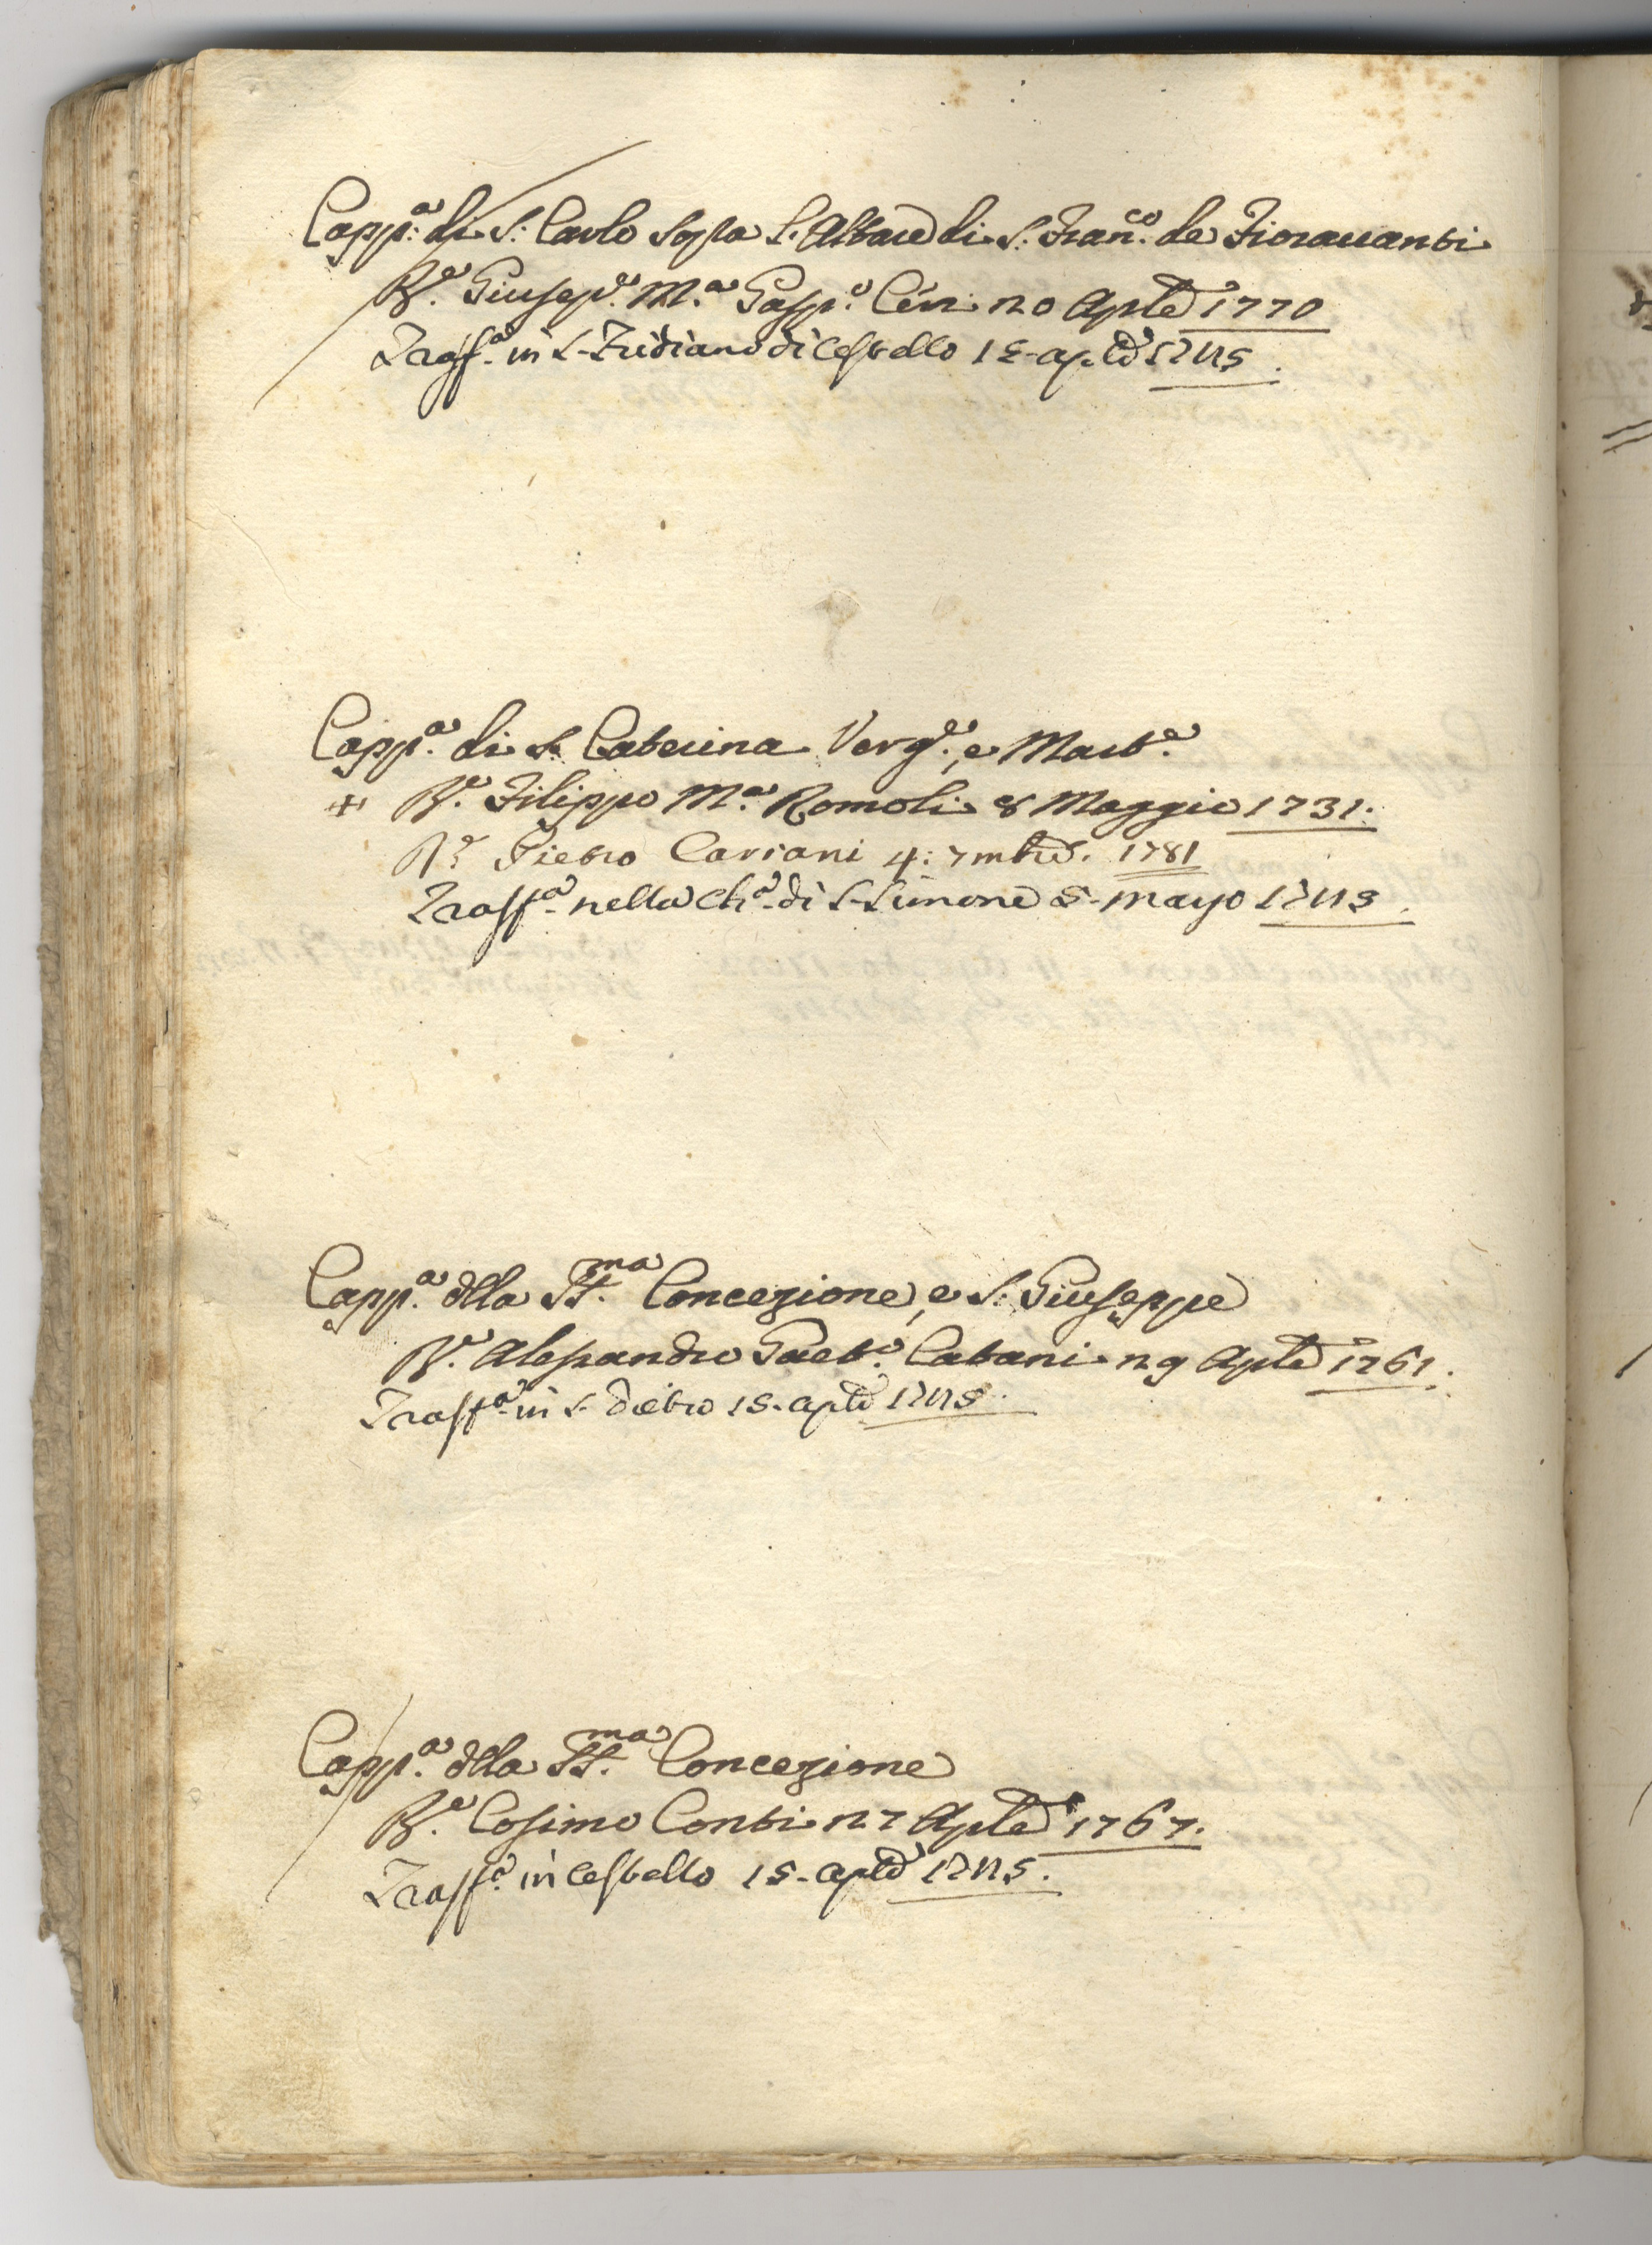 Capp.ª di S. Carlo sopra l'Altare di S. Fran.co de Fioravanti
R.e Giusep.e M.ª Gasp.e 20 Aple 1770
Trasf.ª in S. Fridiano di Cestello 15 aple
Capp.ª di S. Caterina Verg.e, e Mart.e
+ R.e Filippo M.ª Romoli 8 Maggio 1731.
R.e Pietro Carsani 4: 7mbre. 1781
Trasf.ª nella Ch.ª di S. Simone 5 mayo
Capp.ª dlla SS.ma Concezione, e S. Giuseppe
R.e Alessandro Gaet.o Catani 29 Aple 1761.
Trasf.ª in S. Pietro 15 aple
Capp.ª dlla SS.ma Concezione
R.e Cosimo Conti 27 Aple 1767.
Trasf.ª in Cestello 15 aple